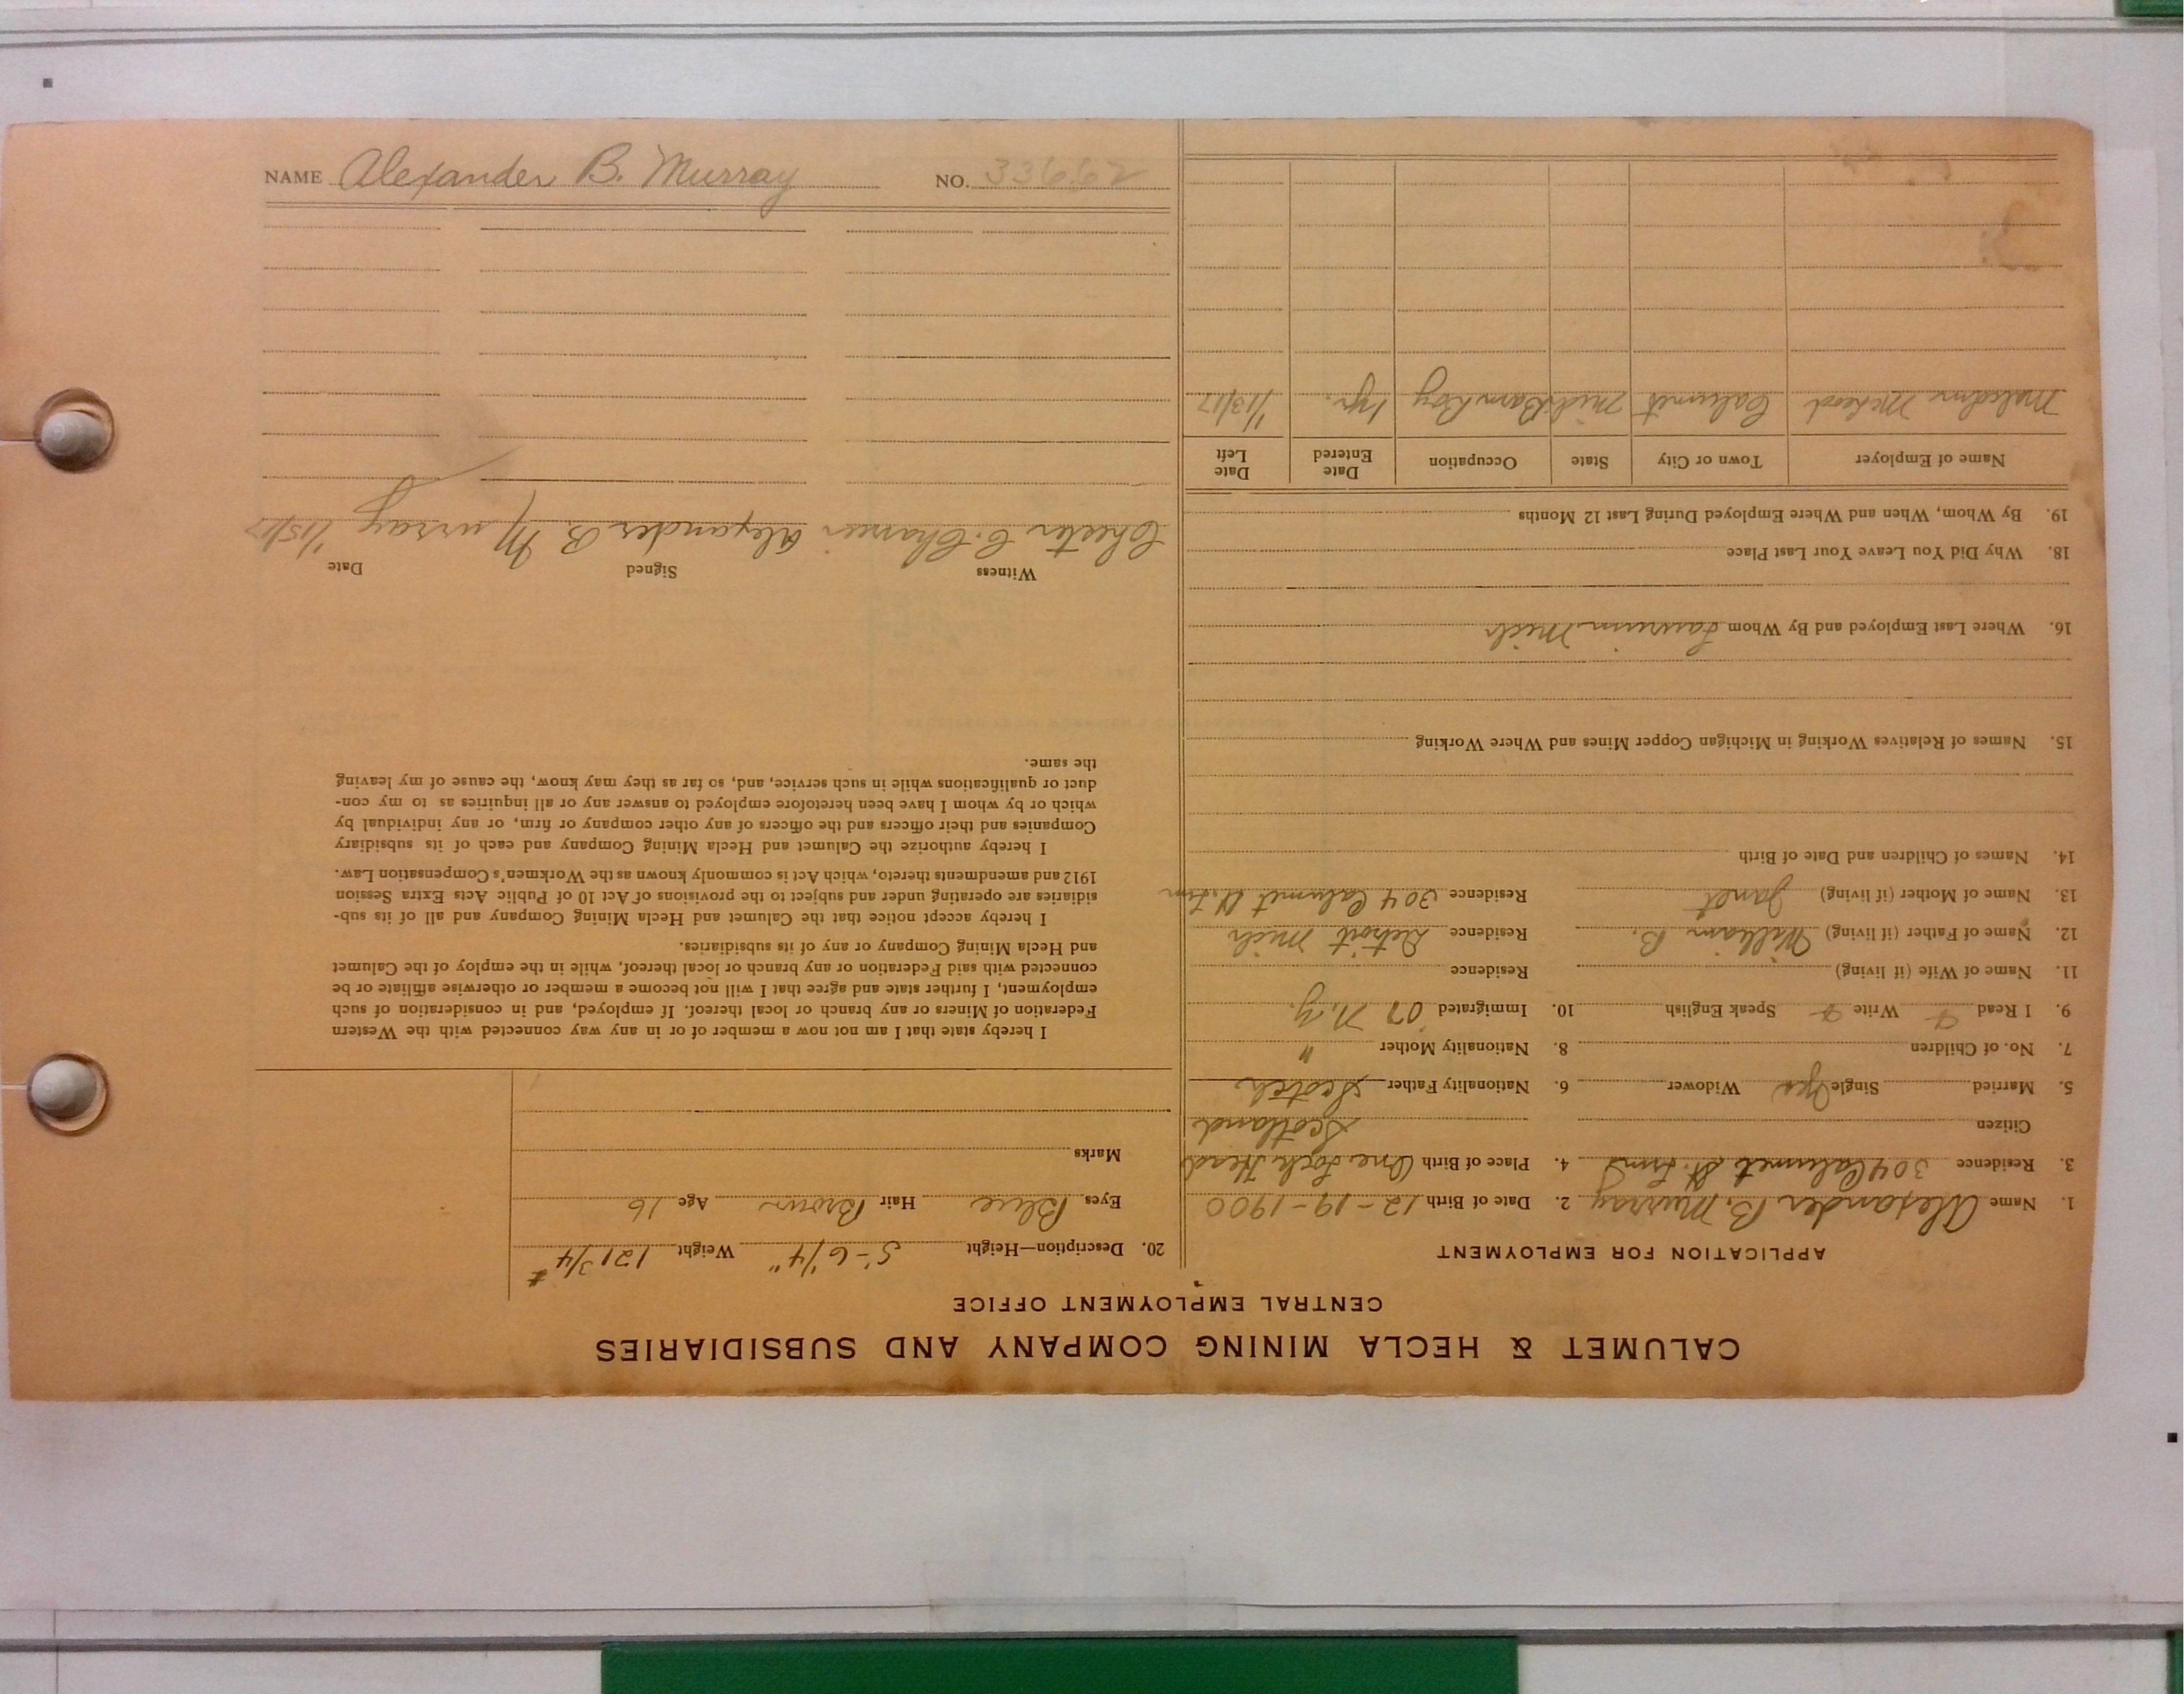 NAME Alexander B. Murray NO. 33662
CALUMET & HECLA MINING COMPANY AND SUBSIDIARIES
CENTRAL EMPLOYMENT OFFICE
APPLICATION FOR EMPLOYMENT
1. Name Alexander B. Murray 2. Date of Birth 12-19-1900
3. Residence 304 Calumet St. 4. Place of Birth
Citizen Scotland
5. Married Single Yes Widower 6. Nationality Father Scotch
7. No. of Children 8. Nationality Mother "
9. I Read Write Speak English 10. Immigrated '07 N.Y.
11. Name of Wife (if living) Residence
12. Name of Father (if living) William B. Residence Detroit Mich
13. Name of Mother (if living) Janet Residence 304 Calumet St.
14. Names of Children and Date of Birth
15. Names of Relatives Working in Michigan Copper Mines and Where Working
16. Where Last Employed and By Whom Laurium Mich
18. Why Did You Leave Your Last Place
19. By Whom, When and Where Employed During Last 12 Months
Name of Employer Town or City State Occupation Date Entered Date Left
Malcolm McLeod Calumet Mich Barn Boy 1 yr. 1/13/17
20. Description—Height 5'-6 1/4" Weight 121 3/4 #
Eyes Blue Hair Brown Age 16
Marks
I hereby state that I am not now a member of or in any way connected with the Western
Federation of Miners or any branch or local thereof. If employed, and in consideration of such
employment, I further state and agree that I will not become a member or otherwise affiliate or be
connected with said Federation or any branch or local thereof, while in the employ of the Calumet
and Hecla Mining Company or any of its subsidiaries.
I hereby accept notice that the Calumet and Hecla Mining Company and all of its sub-
sidiaries are operating under and subject to the provisions of Act 10 of Public Acts Extra Session
1912 and amendments thereto, which Act is commonly known as the Workmen's Compensation Law.
I hereby authorize the Calumet and Hecla Mining Company and each of its subsidiary
Companies and their officers and the officers of any other company or firm, or any individual by
which or by whom I have been heretofore employed to answer any or all inquiries as to my con-
duct or qualifications while in such service, and, so far as they may know, the cause of my leaving
the same.
Witness Signed Date
Chester C. Alexander B. Murray 1/15/17